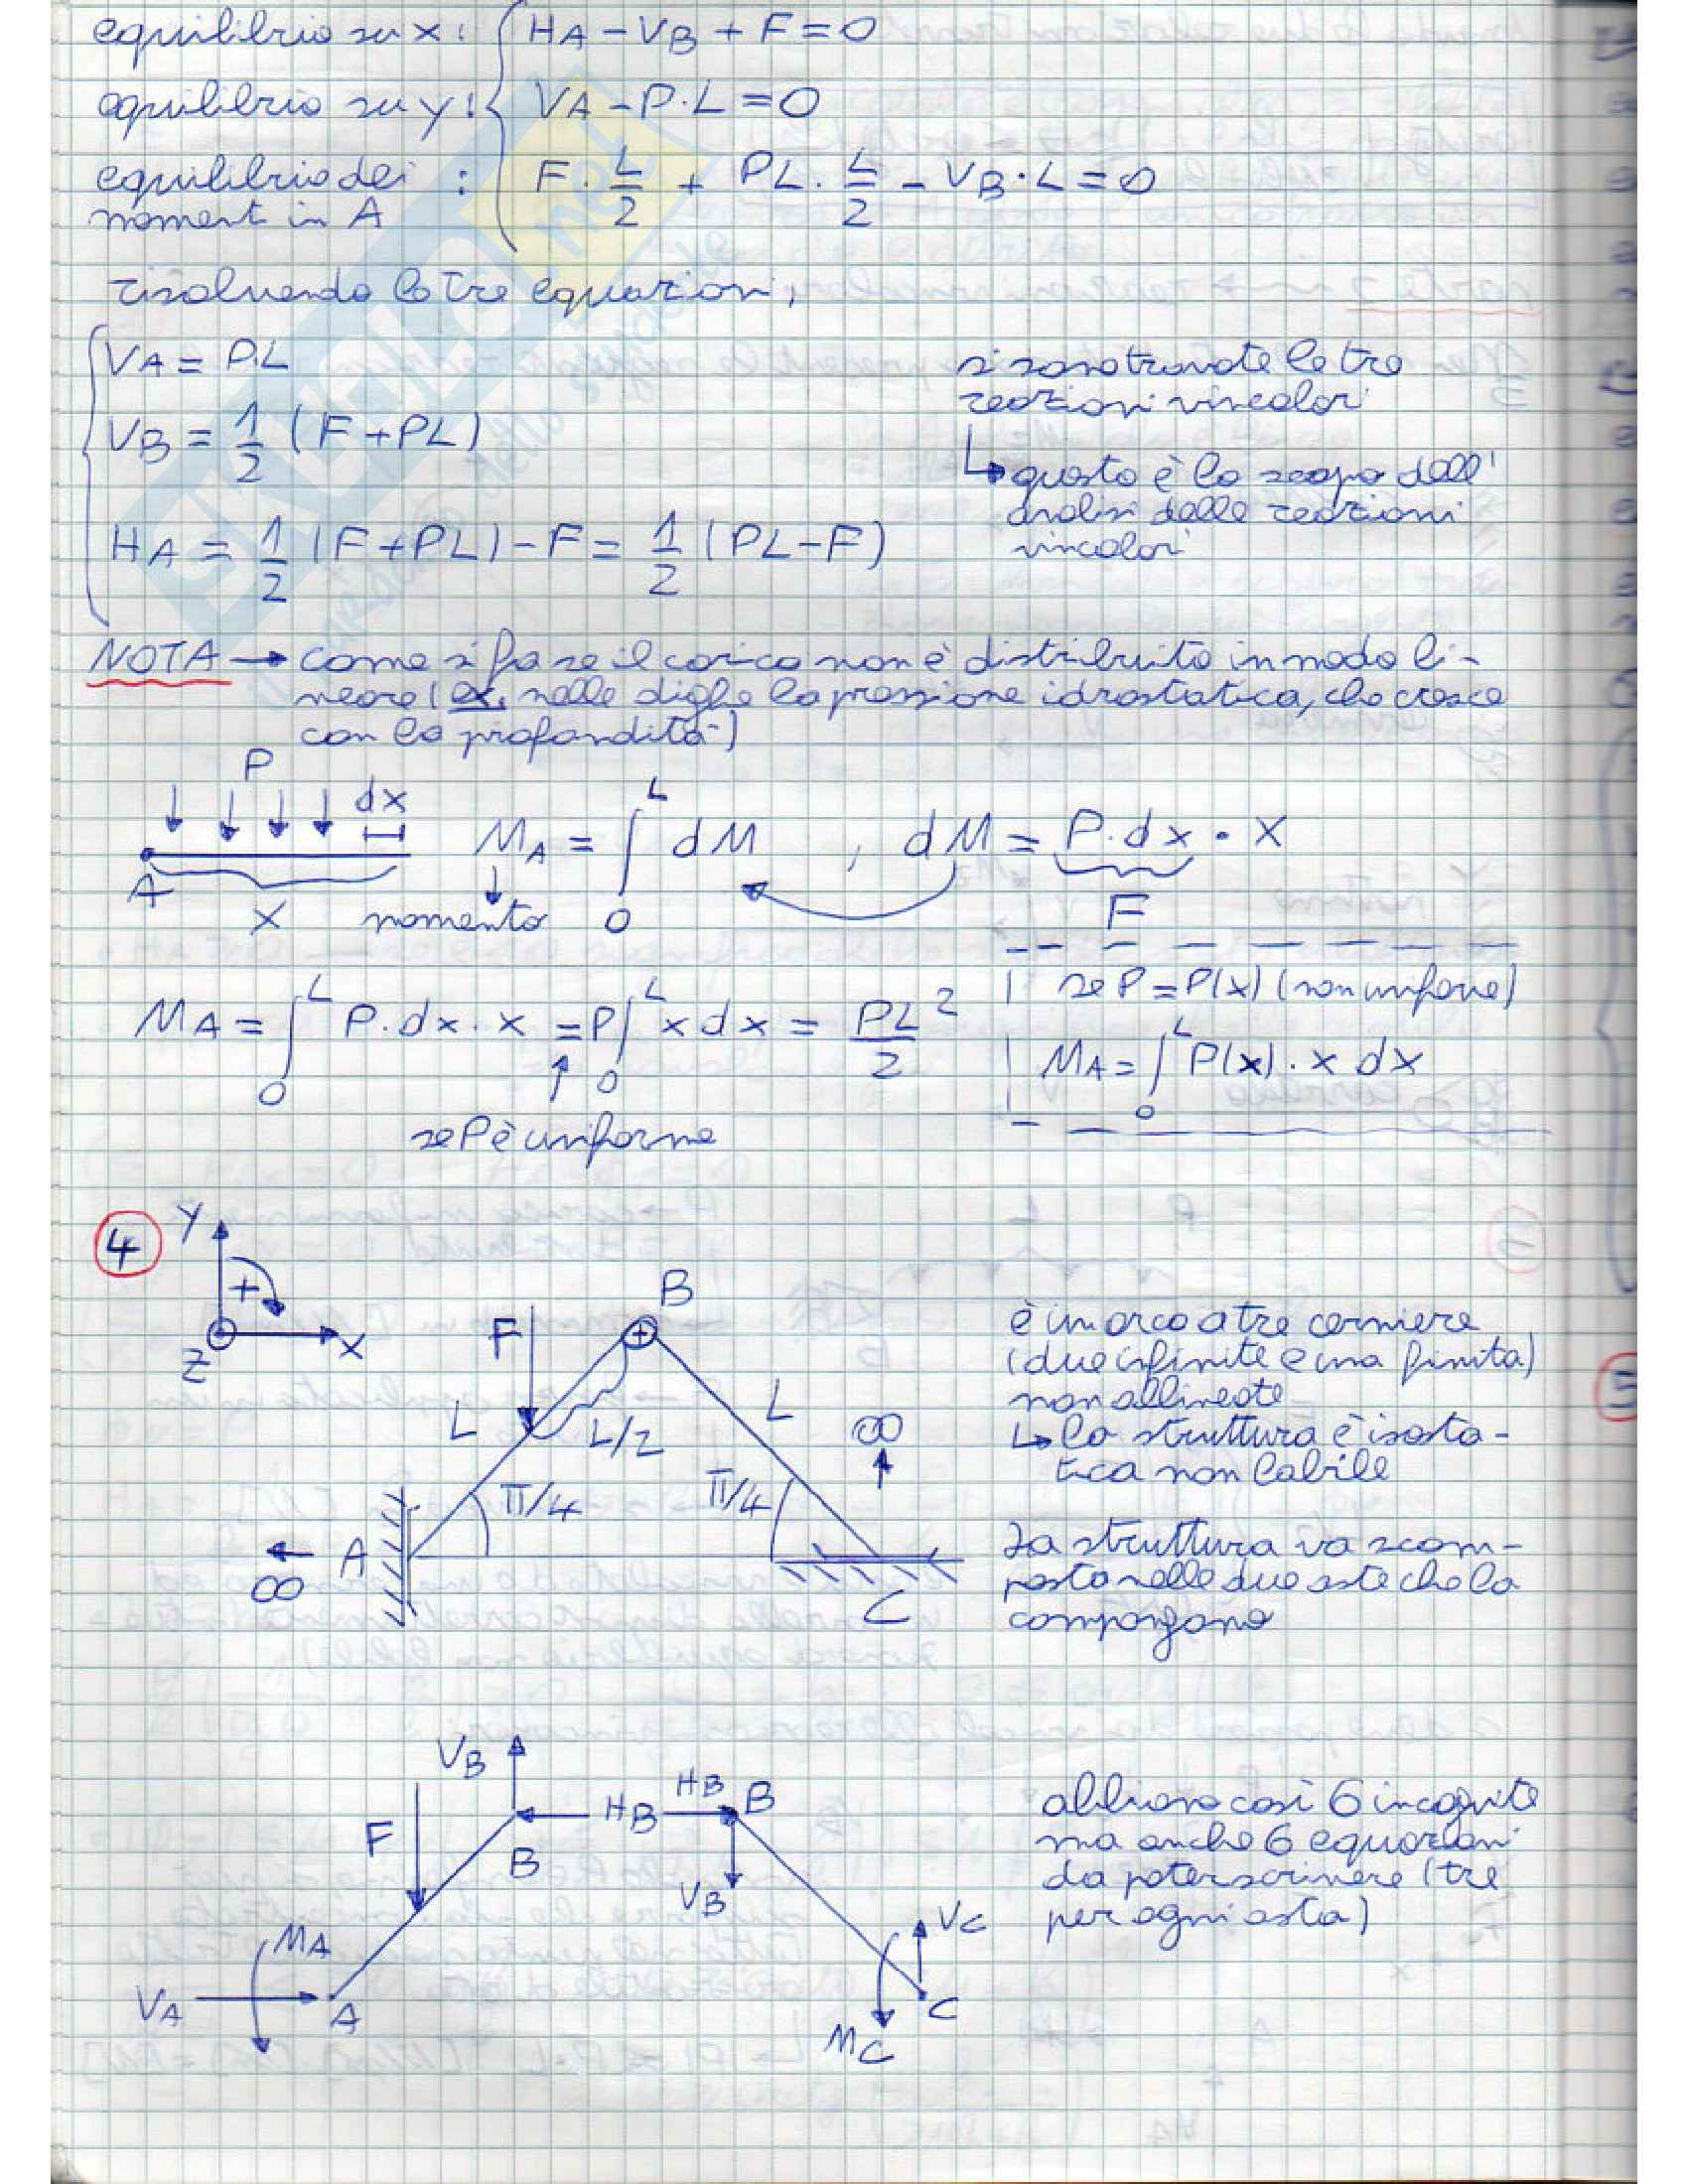 equilibrio su x : { HA - VB + F = 0
equilibrio su y : { VA - P·L = 0
equilibrio dei : { F · L/2 + PL · L/2 - VB · L = 0
moment in A
risolvendo le tre equazioni,
{ VA = P·L
VB = 1/2 (F + PL)
HA = 1/2 (F + PL) - F = 1/2 (PL - F)
si sono trovate le tre
reazioni vincolari
↳ questo è lo scopo dell'
analisi delle reazioni
vincolari
NOTA → come si fa se il carico non è distribuito in modo li-
neare (ex. nelle dighe la pressione idrostatica, che cresce
con la profondità)
P
dx
A
x
MA = ∫ 0 L dM , dM = P·dx · x
momento
F
MA = ∫ 0 L P·dx·x = P ∫ 0 L x dx = PL²/2
se P è uniforme
se P = P(x) (non uniforme)
MA = ∫ 0 L P(x) · x dx
4
Y
+
Z
X
B
F
L
L/2
L
∞
π/4
π/4
A
∞
C
è un arco a tre cerniere
(due infinite e una finita)
non allineate
↳ la struttura è isosta-
tica non labile
La struttura va scom-
posta nelle due aste che la
compongono
VB
HB
HB
B
F
B
VB
MA
VA
A
VC
C
MC
abbiamo così 6 incognite
ma anche 6 equazioni
da poter scrivere (tre
per ogni asta)
SKUOLA.net